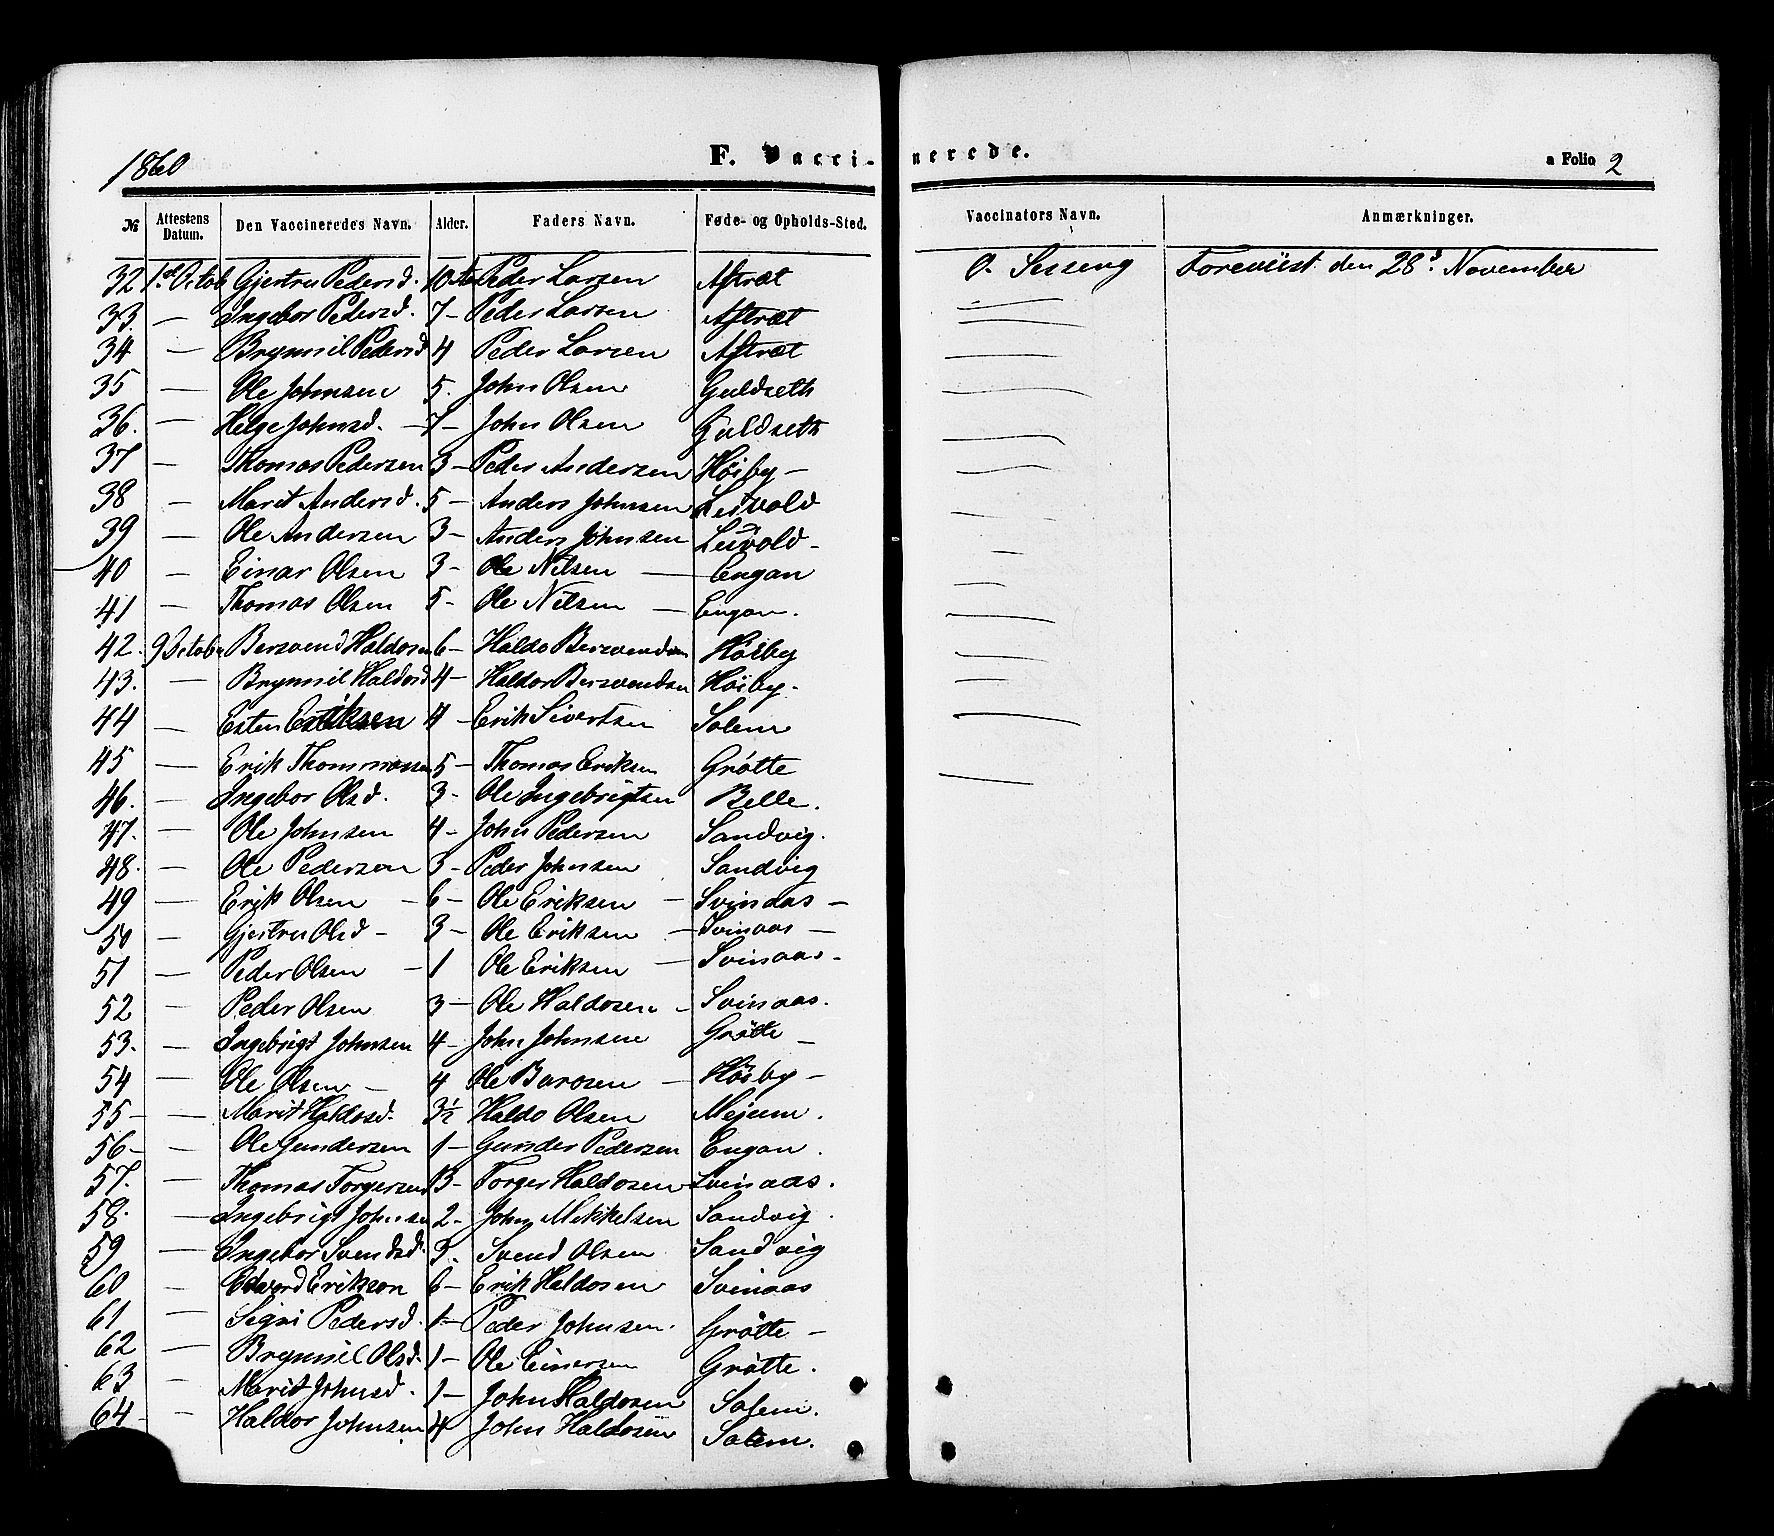 1860
F. Vacci-nerede.
a Folio 2
№ Attestens Datum. Den Vaccineredes Navn. Alder. Faders Navn. Føde- og Opholds-Sted. Vaccinators Navn. Anmærkninger.
32 1st Octob Gjertru Pedersd. 10 Peder Larsen Aftræt O. Sesseng Foreviist den 28d November
33. — Ingebor Pedersd. 7 — Peder Larsen Aftræt —
34 — Brynnil Pedersd 4 Peder Larsen Aftræt —
35 — Ole Johnsen 5. John Olsen Guldseth —
36. — Helge Johnsd. — 7 — John Olsen Guldseth —
37 — Thomas Pedersen 3 — Peder Andersen Höiby — —
38 — Marit Andersd. 5 — Anders Johnsen Leivold —
39 — Ole Andersen 3 — Anders Johnsen Leivold — —
40 — Einar Olsen 3 - Ole Nilsen — Engan —
41 — Thomas Olsen 5 - Ole Nilsen — Engan. —
42. 9 October Bersvend Haldosen 6 — Haldo Bersvendsen Höiby —
43. — Brynnil Haldosd 4 — Haldor Bersvendsen Höiby. —
44 — Esten Eriksen 4 — Erik Sivertsen Solem —
45 — Erik Thommassen 5 — Thomas Eriksen Grötte —
46. — Ingebor Olsd. 3 - Ole Ingebrigtsen Belle.
47. — Ole Johnsen 4 - John Pedersen Sandvig.
48. — Ole Pedersen 3 - Peder Johnsen Sandvig
49 — Erik Olsen — 6 — Ole Eriksen — Svinaas —
50 — Gjertru Olsd — 3 — Ole Eriksen — Svinaas —
51 — Peder Olsen — 1 Ole Eriksen — Svinaas -
52 — Peder Olsen 3 — Ole Haldosen - Svinaas.
53. — Ingebrigt Johnsen 4 — John Johnsen Grötte —
54 — Ole Olsen — 4 Ole Barosen — Höiby —
55 — — Marit Haldosd. 3½ Haldo Olsen Mejum.
56 — — Ole Gundersen 1 — Gunder Pedersen Engan.
57. — Thomas Torgersen 13 - Torger Haldosen Svinaas.
58. — Ingebrigt Johnsen 2 - John Mikkelsen Sandvig.
59 — Ingebor Svendsd. 3. Svend Olsen Sandvig
60 — Edvard Erikson 6 — Erik Haldosen Svinaas
61 — Sigri Pedersd. 1 — Peder Johnsen. Grötte —
62 — Brynnil Olsd. 1 — Ole Einersen Grötte.
63 — Marit Johnsd. 1 — John Haldosen Solem.
64 — — Haldor Johnsen 4 John Haldosen Solem.